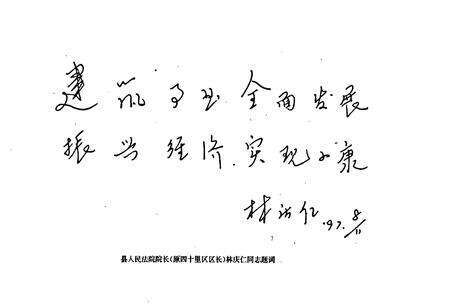 建筑事业全面发展
振兴经济实现小康
林庆仁 97.8/11
县人民法院院长(原四十里区区长)林庆仁同志题词